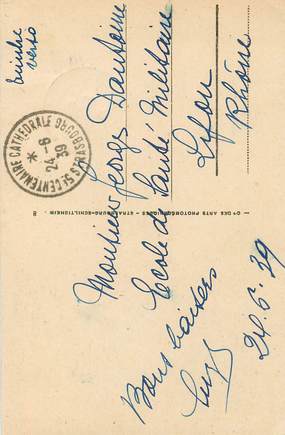 timbre
verso
5e CENTENAIRE CATHEDRALE STRASBOURG
*
24-6
39
Monsieur Georges Dantoine
Ecole de Santé Militaire
Lyon
Rhône
8
Cie DES ARTS PHOTOMECANIQUES - STRASBOURG-SCHILTIGHEIM
Bons baisers
24.6.39